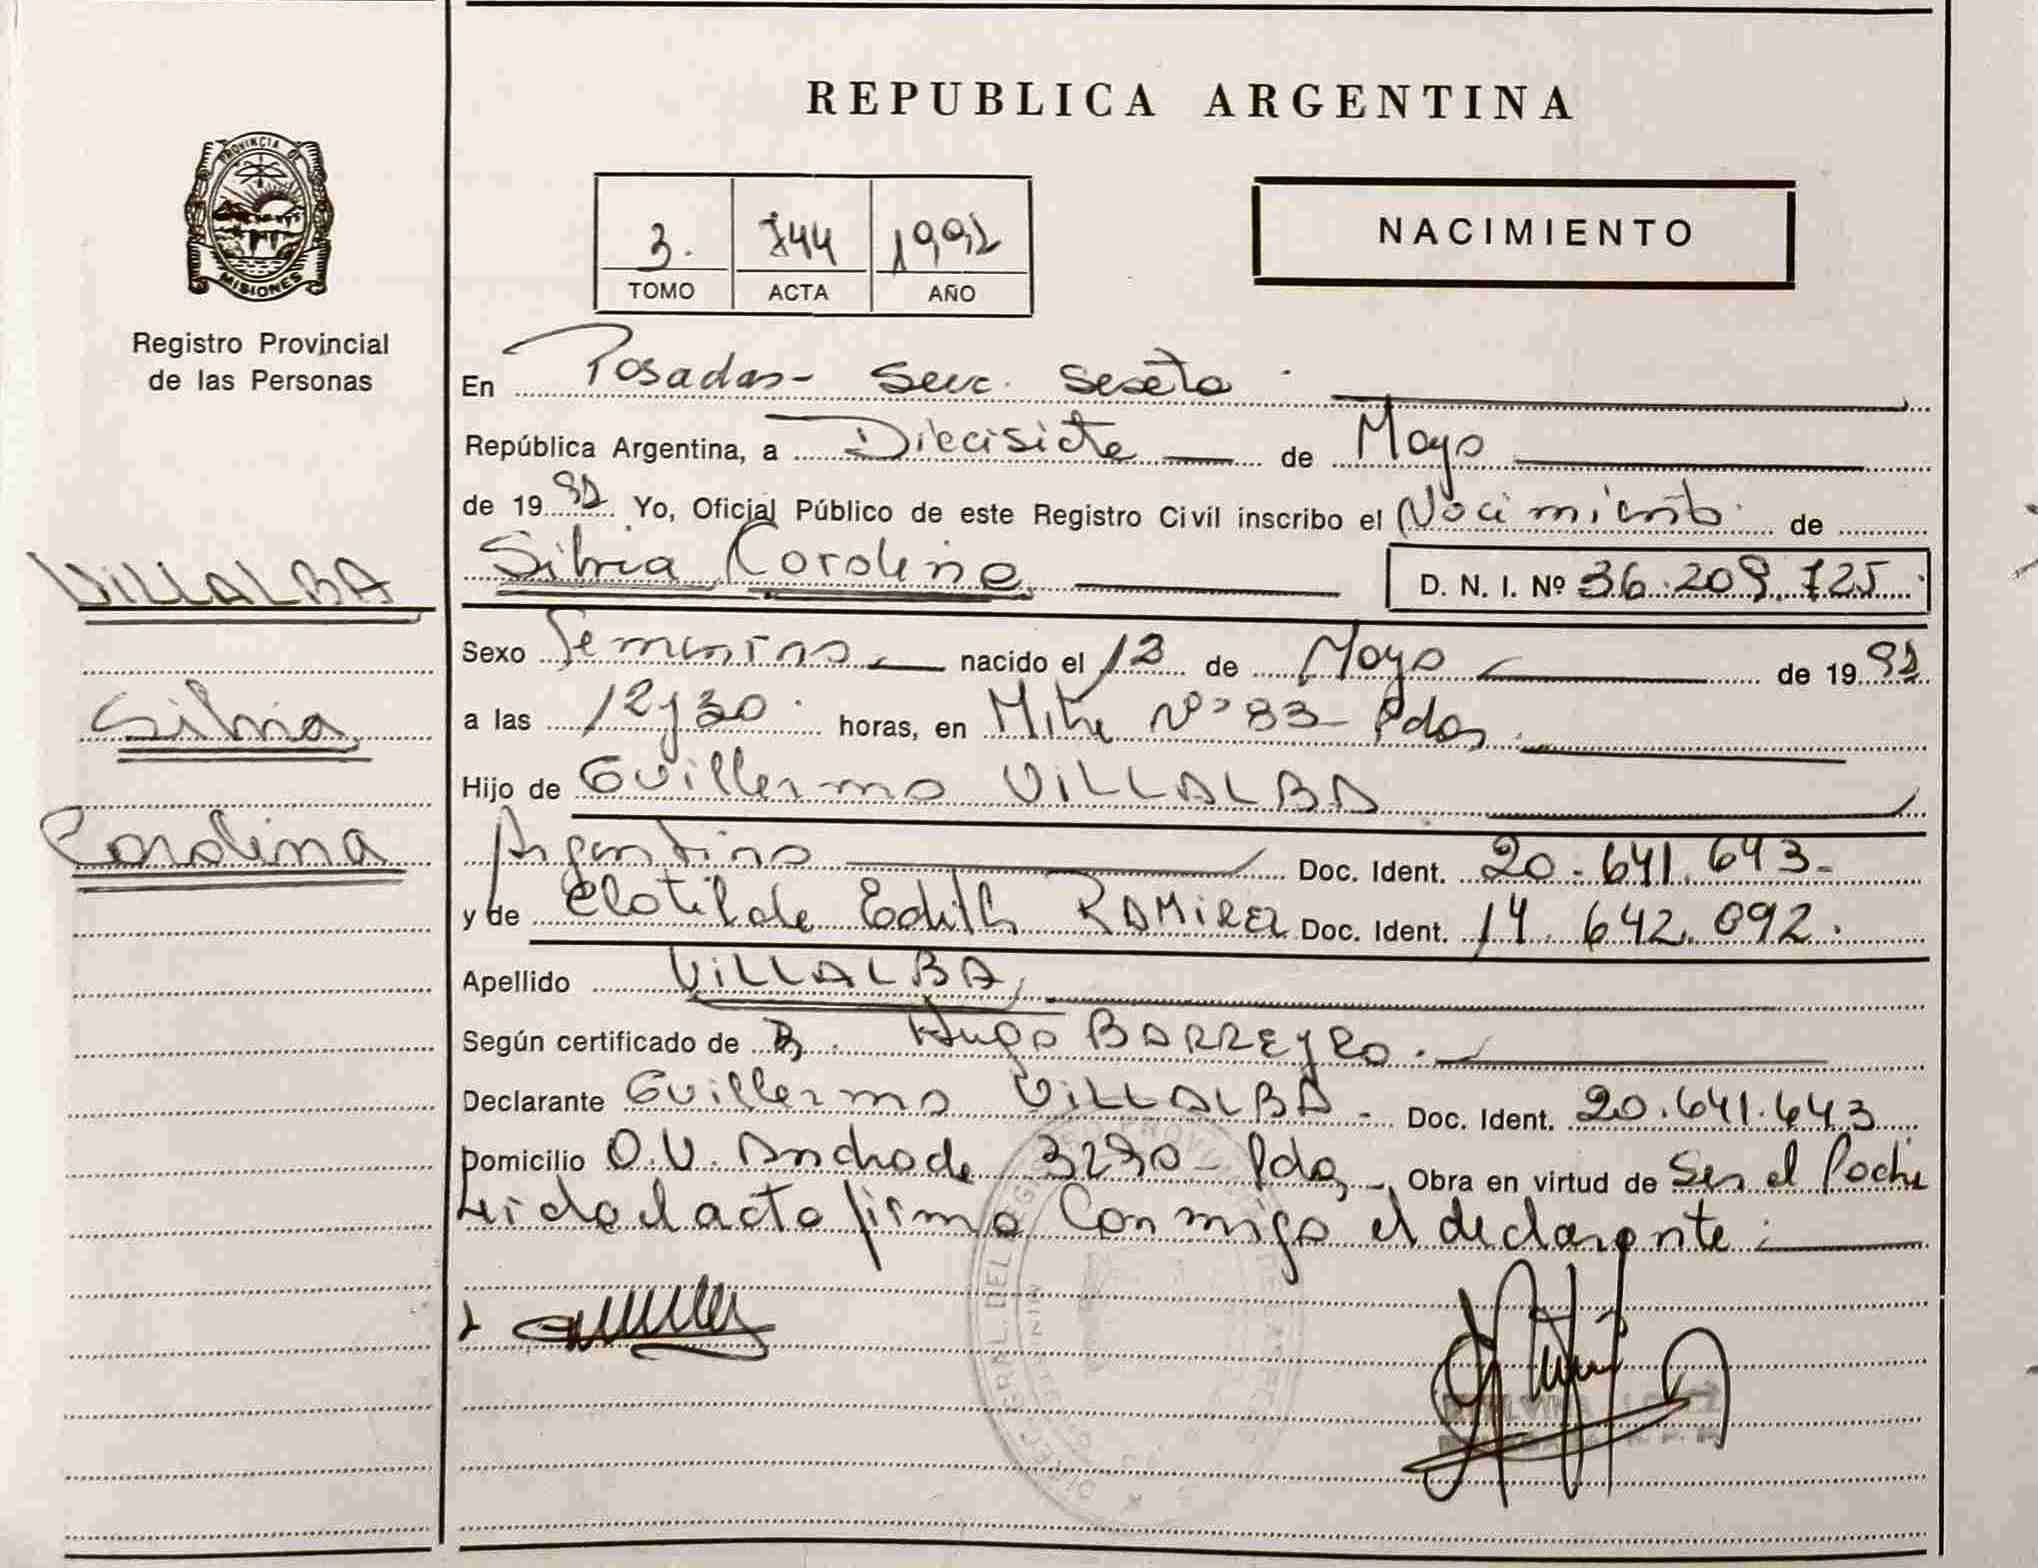 REPUBLICA ARGENTINA
PROVINCIA DE
MISIONES
Registro Provincial
de las Personas
3. 744 1992
TOMO ACTA AÑO
NACIMIENTO
En Posadas - Secc. Sexta
República Argentina, a Diecisiete de Mayo
de 1992 Yo, Oficial Público de este Registro Civil inscribo el Nacimiento de
Silvia Carolina D. N. I. Nº 36.209.725.
VILLALBA
Silvia
Carolina
Sexo Femenino nacido el 12 de Mayo de 1992
a las 12 y 30 horas, en Mitre Nº 83 - Pdas
Hijo de Guillermo VILLALBA
Argentino Doc. Ident. 20.641.643-
y de Clotilde Edith RAMIREZ Doc. Ident. 14.642.092.
Apellido VILLALBA
Según certificado de Hugo BARREYRO.
Declarante Guillermo VILLALBA - Doc. Ident. 20.641.643
Domicilio O.V. Andrade 3290 - Pdas - Obra en virtud de Ser el Padre
Leida el acta firma Conmigo el declarante: